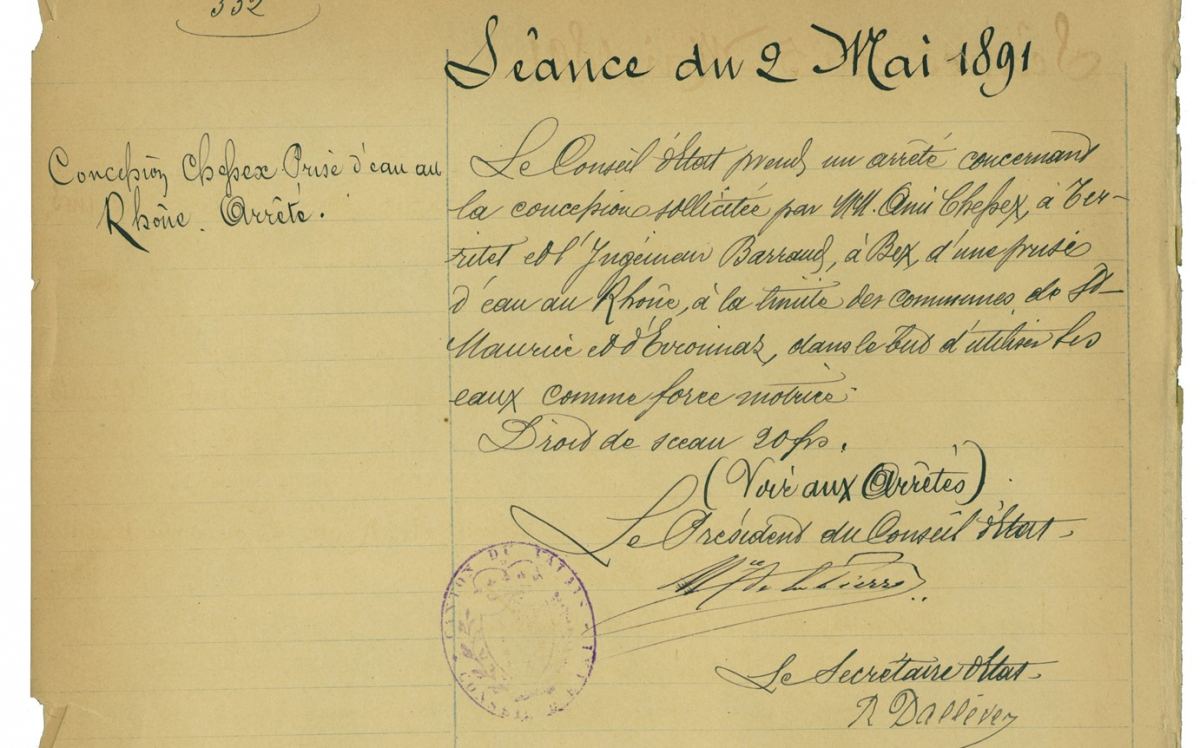 332
Séance du 2 Mai 1891
Concession Chessex Prise d'eau au
Rhône. Arrêté.
Le Conseil d'Etat prend un arrêté concernant
la concession sollicitée par MM. Ami Chessex, à Ter-
ritet et l'Ingénieur Barraud, à Bex, d'une prise
d'eau au Rhône, à la limite des communes de St-
Maurice et d'Evionnaz, dans le but d'utiliser les
eaux comme force motrice.
Droit de sceau 20 frs.
(Voir aux Arrêtés)
Le Président du Conseil d'Etat
Mce de la Pierre
CANTON DU VALAIS
CONSEIL D'ETAT
Le Secrétaire d'Etat
R Dallèves